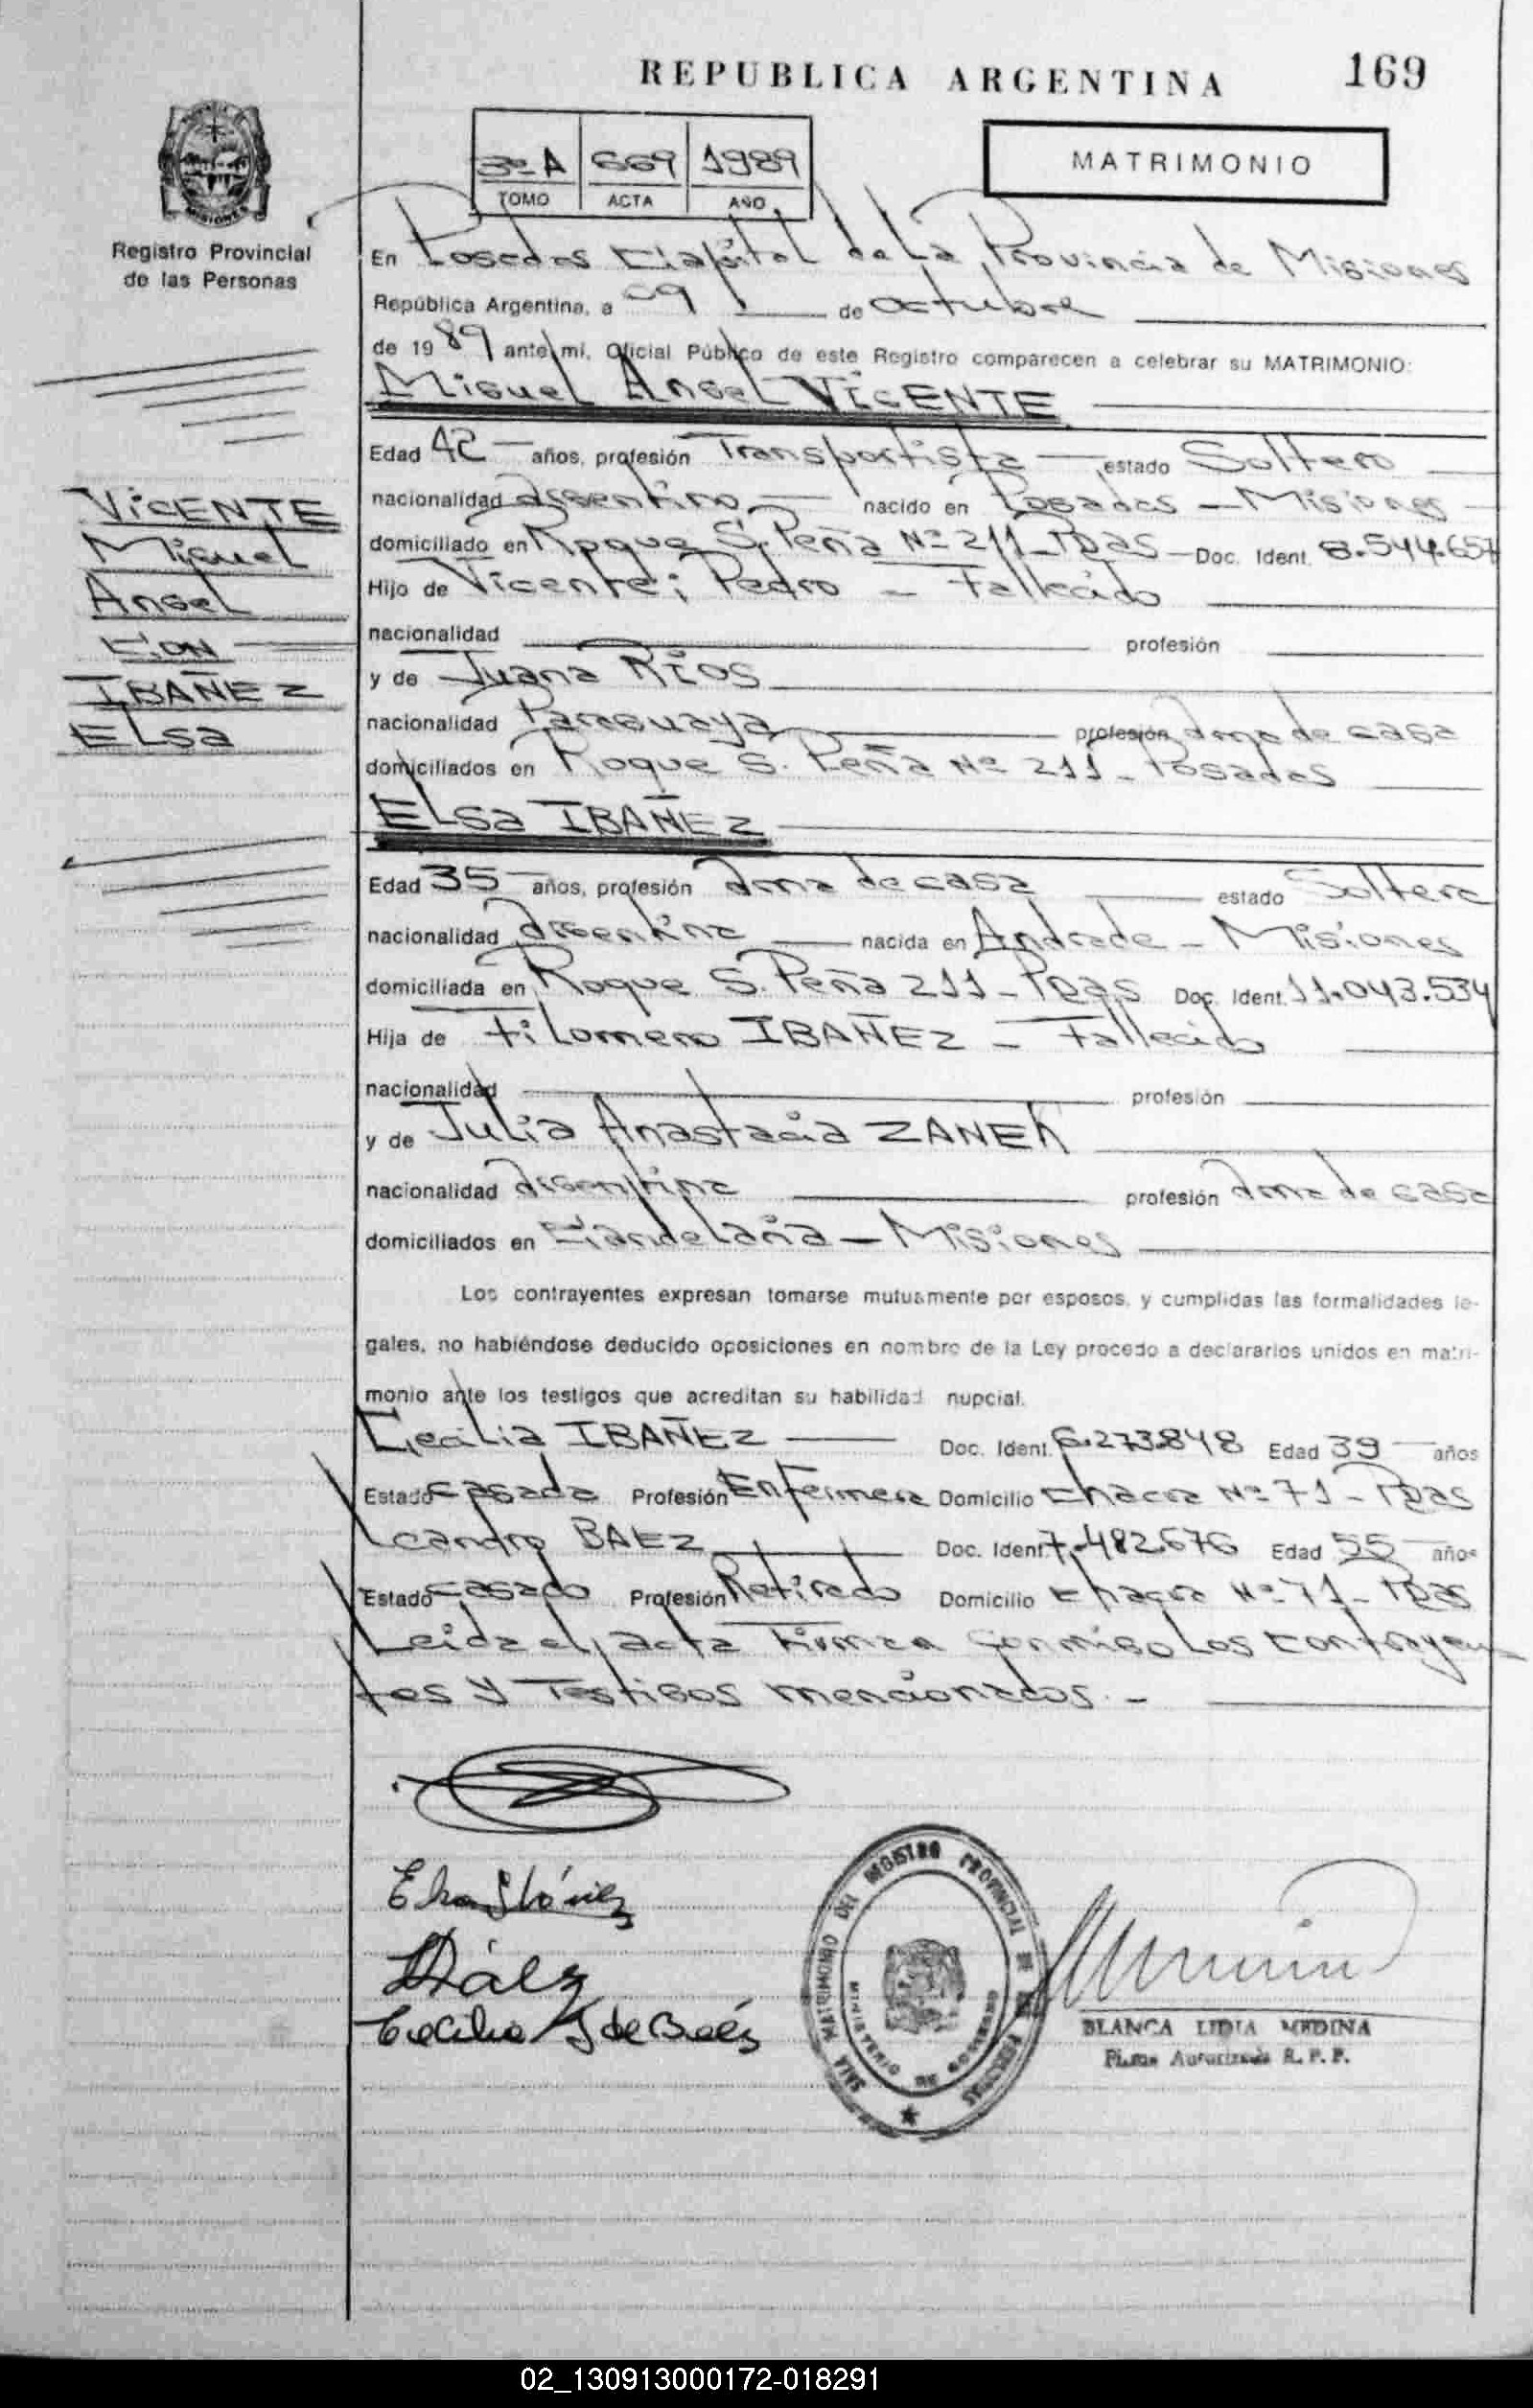 REPUBLICA ARGENTINA
169
3º A 669 1989
TOMO ACTA AÑO
MATRIMONIO
Registro Provincial
de las Personas
En Posadas Capital de La Provincia de Misiones
República Argentina, a 09 de octubre
de 1989 ante mi, Oficial Público de este Registro comparecen a celebrar su MATRIMONIO:
Miguel Angel VICENTE
Edad 42 años, profesión Transportista estado Soltero
nacionalidad argentino nacido en Posadas - Misiones
domiciliado en Roque S. Peña Nº 211 - Pdas - Doc. Ident. 8.544.657
Hijo de Vicente; Pedro - Fallecido
nacionalidad profesión
y de Juana RIOS
nacionalidad Paraguaya profesión ama de casa
domiciliados en Roque S. Peña Nº 211 - Posadas
VICENTE
Miguel
Angel
CON
IBAÑEZ
ELsa
ELsa IBAÑEZ
Edad 35 años, profesión ama de casa estado Soltera
nacionalidad argentina nacida en Andrade - Misiones
domiciliada en Roque S. Peña 211 - Pdas Doc. Ident. 11.043.534
Hija de Filomeno IBAÑEZ - Fallecido
nacionalidad profesión
y de Julia Anastacia
nacionalidad argentina profesión ama de casa
domiciliados en Candelaria - Misiones
Los contrayentes expresan tomarse mutuamente por esposos, y cumplidas las formalidades le-
gales, no habiéndose deducido oposiciones en nombre de la Ley procedo a declararlos unidos en matri-
monio ante los testigos que acreditan su habilidad nupcial.
Cecilia IBAÑEZ Doc. Ident. 6.273.848 Edad 39 años
Estado casada Profesión Enfermera Domicilio Chacra Nº 71 - Pdas
Leandro BAEZ Doc. Ident. 7.482.676 Edad 55 años
Estado casado Profesión Retirado Domicilio Chacra Nº 71 - Pdas
Leida el acta Firman conmigo Los contrayen
tes y Testigos mencionados. -
Elsa Ibáñez
Báez
Cecilia I de Baéz
SALA MATRIMONIO DEL REGISTRO PROVINCIAL DE LAS PERSONAS
MINISTERIO DE GOBIERNO
BLANCA LIDIA MEDINA
Firma Autorizada R. P. P.
02_130913000172-018291